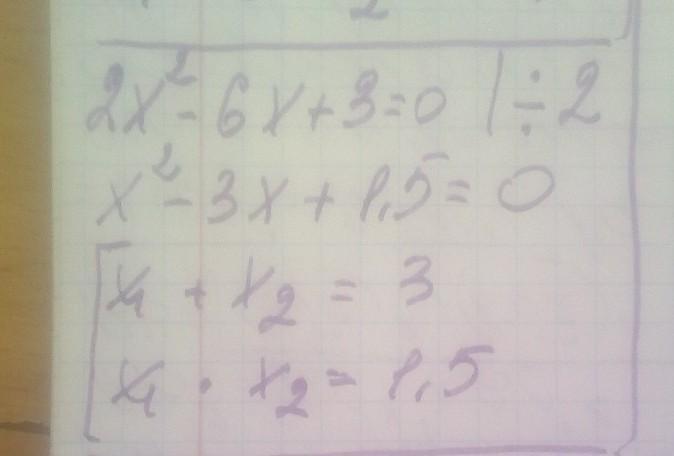 2
2x² - 6x + 3 = 0 | ÷ 2
x² - 3x + 1,5 = 0
x₁ + x₂ = 3
x₁ · x₂ = 1,5